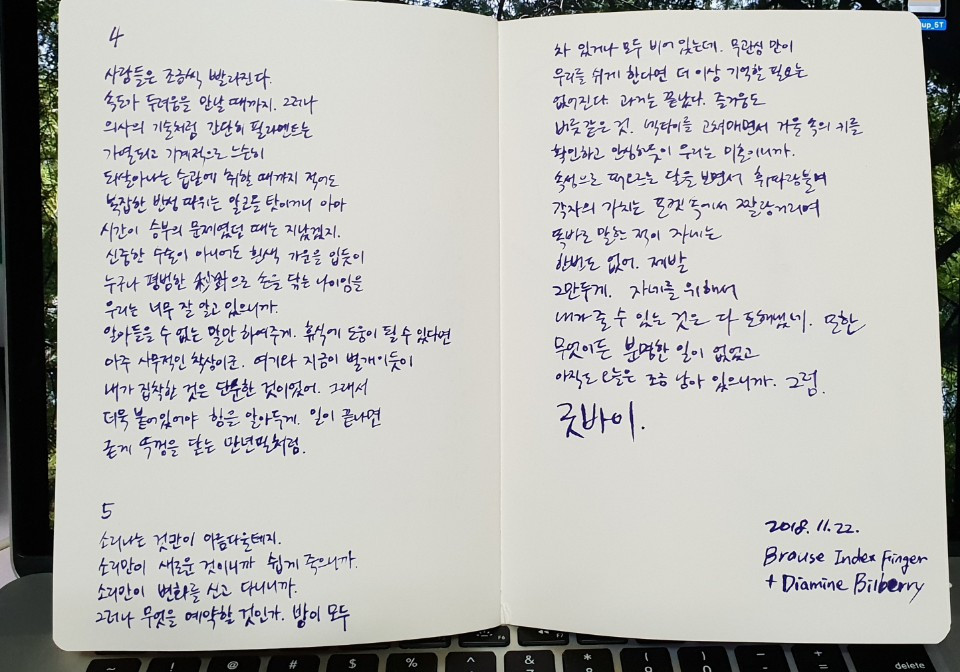 4
사람들은 조금씩 빨라진다.
속도가 두려움을 만날 때까지. 그러나
의사의 기술처럼 간단히 필라멘트는
가열되고 기계적으로 느슨히
되살아나는 습관에 취할 때까지 적어도
복잡한 반성 따위는 알코올 탓이거니 아마
시간이 승부의 문제였던 때는 지났겠지.
신중한 수술이 아니어도 흰색 가운을 입듯이
누구나 평범한 초조으로 손을 닦는 나이임을
우리는 너무 잘 알고 있으니까.
알아들을 수 없는 말만 하여주게. 휴식에 도움이 될 수 있다면
아주 사무적인 착상이군. 여기와 지금이 별개이듯이
내가 집착한 것은 단순한 것이었어. 그래서
더욱 붙어있어야 함을 알아두게. 일이 끝나면
굳게 뚜껑을 닫는 만년필처럼.
5
소리나는 것만이 아름다울테지.
소리만이 새로운 것이니까 쉽게 죽으니까.
소리만이 변화를 신고 다니니까.
그러나 무엇을 예약할 것인가. 방이 모두
차 있거나 모두 비어 있는데. 무관심 만이
우리를 쉬게 한다면 더 이상 기억할 필요는
없어진다. 과거는 끝났다. 즐거움도
버릇같은 것. 넥타이를 고쳐매면서 거울 속의 키를
확인하고 안심하듯이 우리는 미혼이니까.
속성으로 떠오르는 달을 보면서 휘파람불며
각자의 가치는 포켓 속에서 짤랑거리며
똑바로 말한 적이 자네는
한번도 없어. 제발
그만두게. 자네를 위해서
내가 줄 수 있는 것은 다 토해냈네. 또한
무엇이든 분명한 일이 없었고
아직도 오늘은 조금 남아 있으니까. 그럼.
굿바이.
2018. 11. 22.
Brause Index Finger
+ Diamine Bilberry
~
!
@
#
$
%
^
&
*
(
)
delete